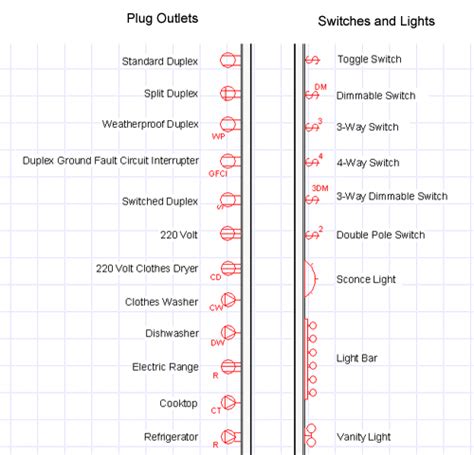 Plug Outlets
Standard Duplex
Split Duplex
Weatherproof Duplex
WP
Duplex Ground Fault Circuit Interrupter
GFCI
Switched Duplex
220 Volt
220 Volt Clothes Dryer
CD
Clothes Washer
CW
Dishwasher
DW
Electric Range
R
Cooktop
CT
Refrigerator
R
Switches and Lights
Toggle Switch
DM
Dimmable Switch
3
3-Way Switch
4
4-Way Switch
3DM
3-Way Dimmable Switch
2
Double Pole Switch
Sconce Light
Light Bar
Vanity Light